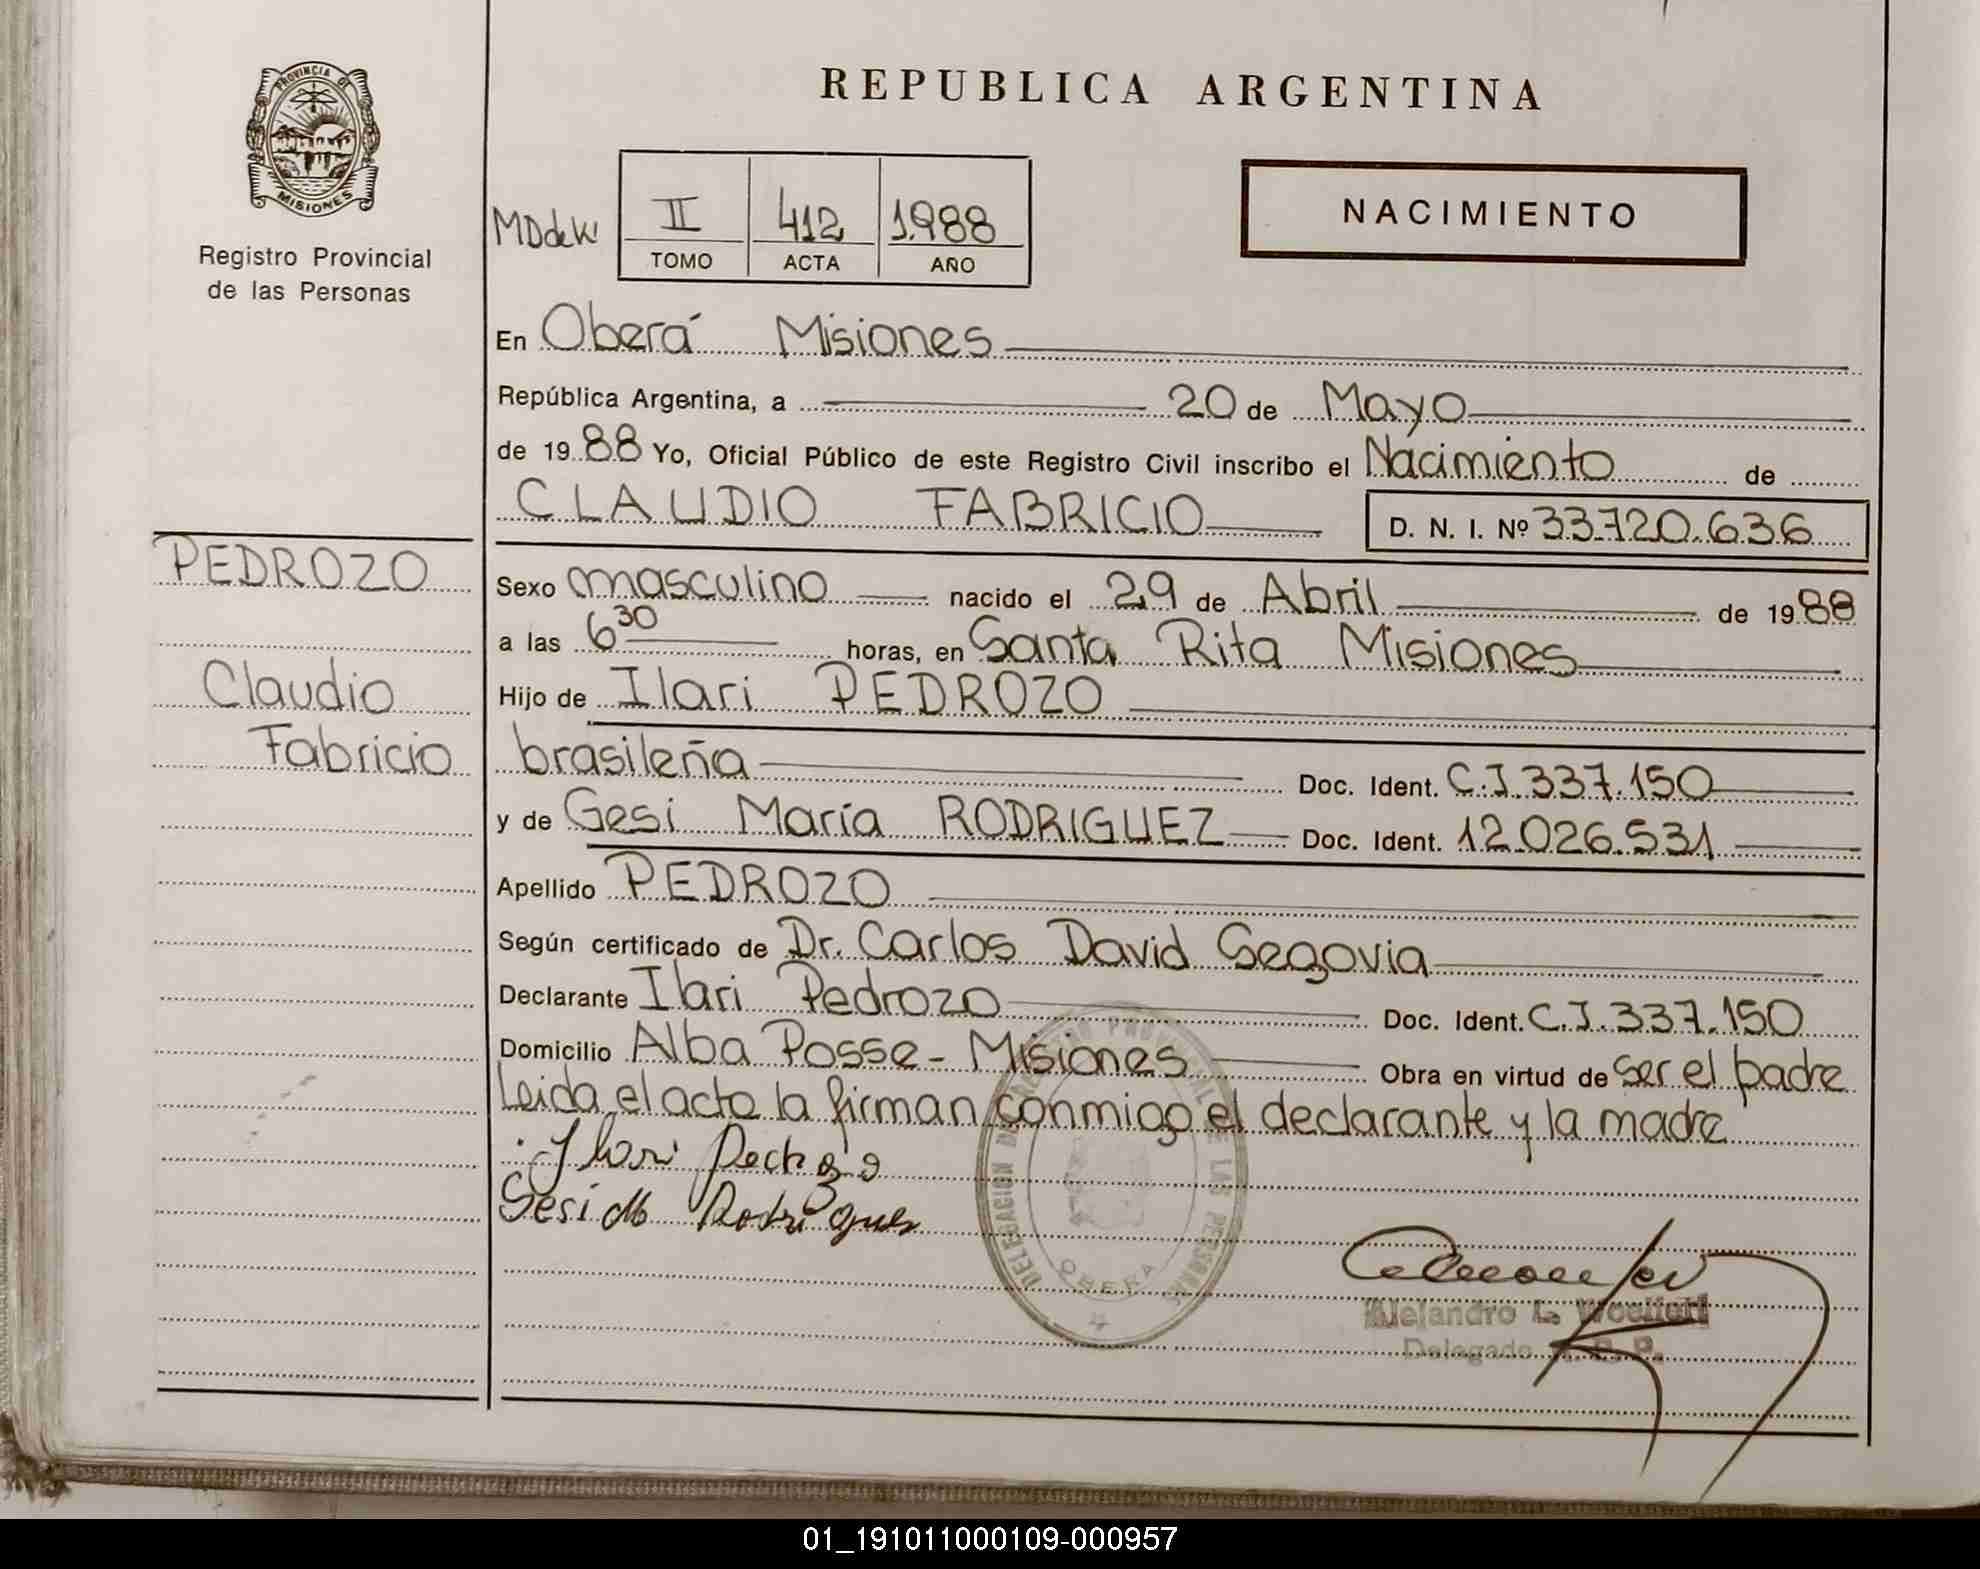 PROVINCIA DE
MISIONES
Registro Provincial
de las Personas
REPUBLICA ARGENTINA
NACIMIENTO
II 412 1.988
TOMO ACTA AÑO
En Oberá Misiones
República Argentina, a 20 de Mayo
de 19 88 Yo, Oficial Público de este Registro Civil inscribo el Nacimiento de
CLAUDIO FABRICIO D. N. I. Nº 33.720.636
PEDROZO
Claudio
Fabricio
Sexo masculino nacido el 29 de Abril de 19 88
a las 6 30 horas, en Santa Rita Misiones
Hijo de Ilari PEDROZO
brasileña Doc. Ident. C.I. 337.150
y de Gesi María RODRIGUEZ Doc. Ident. 12.026.531
Apellido PEDROZO
Según certificado de Dr. Carlos David Segovia
Declarante Ilari Pedrozo Doc. Ident. C.I. 337.150
Domicilio Alba Posse - Misiones Obra en virtud de ser el padre
Leida el acta la firman conmigo el declarante y la madre
Ilari Pedrozo
Gesi M Rodrigues
DELEGACION DEL REGISTRO PROVINCIAL DE LAS PERSONAS
OBERA
Alejandro L.
Delegado R. P. P.
01_191011000109-000957